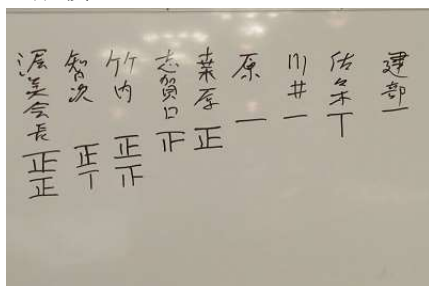 建部 一
佐々木 丅
川井 一
原 一
正
志賀口
竹内 正
智次 正 丅
渥美会長 正 正